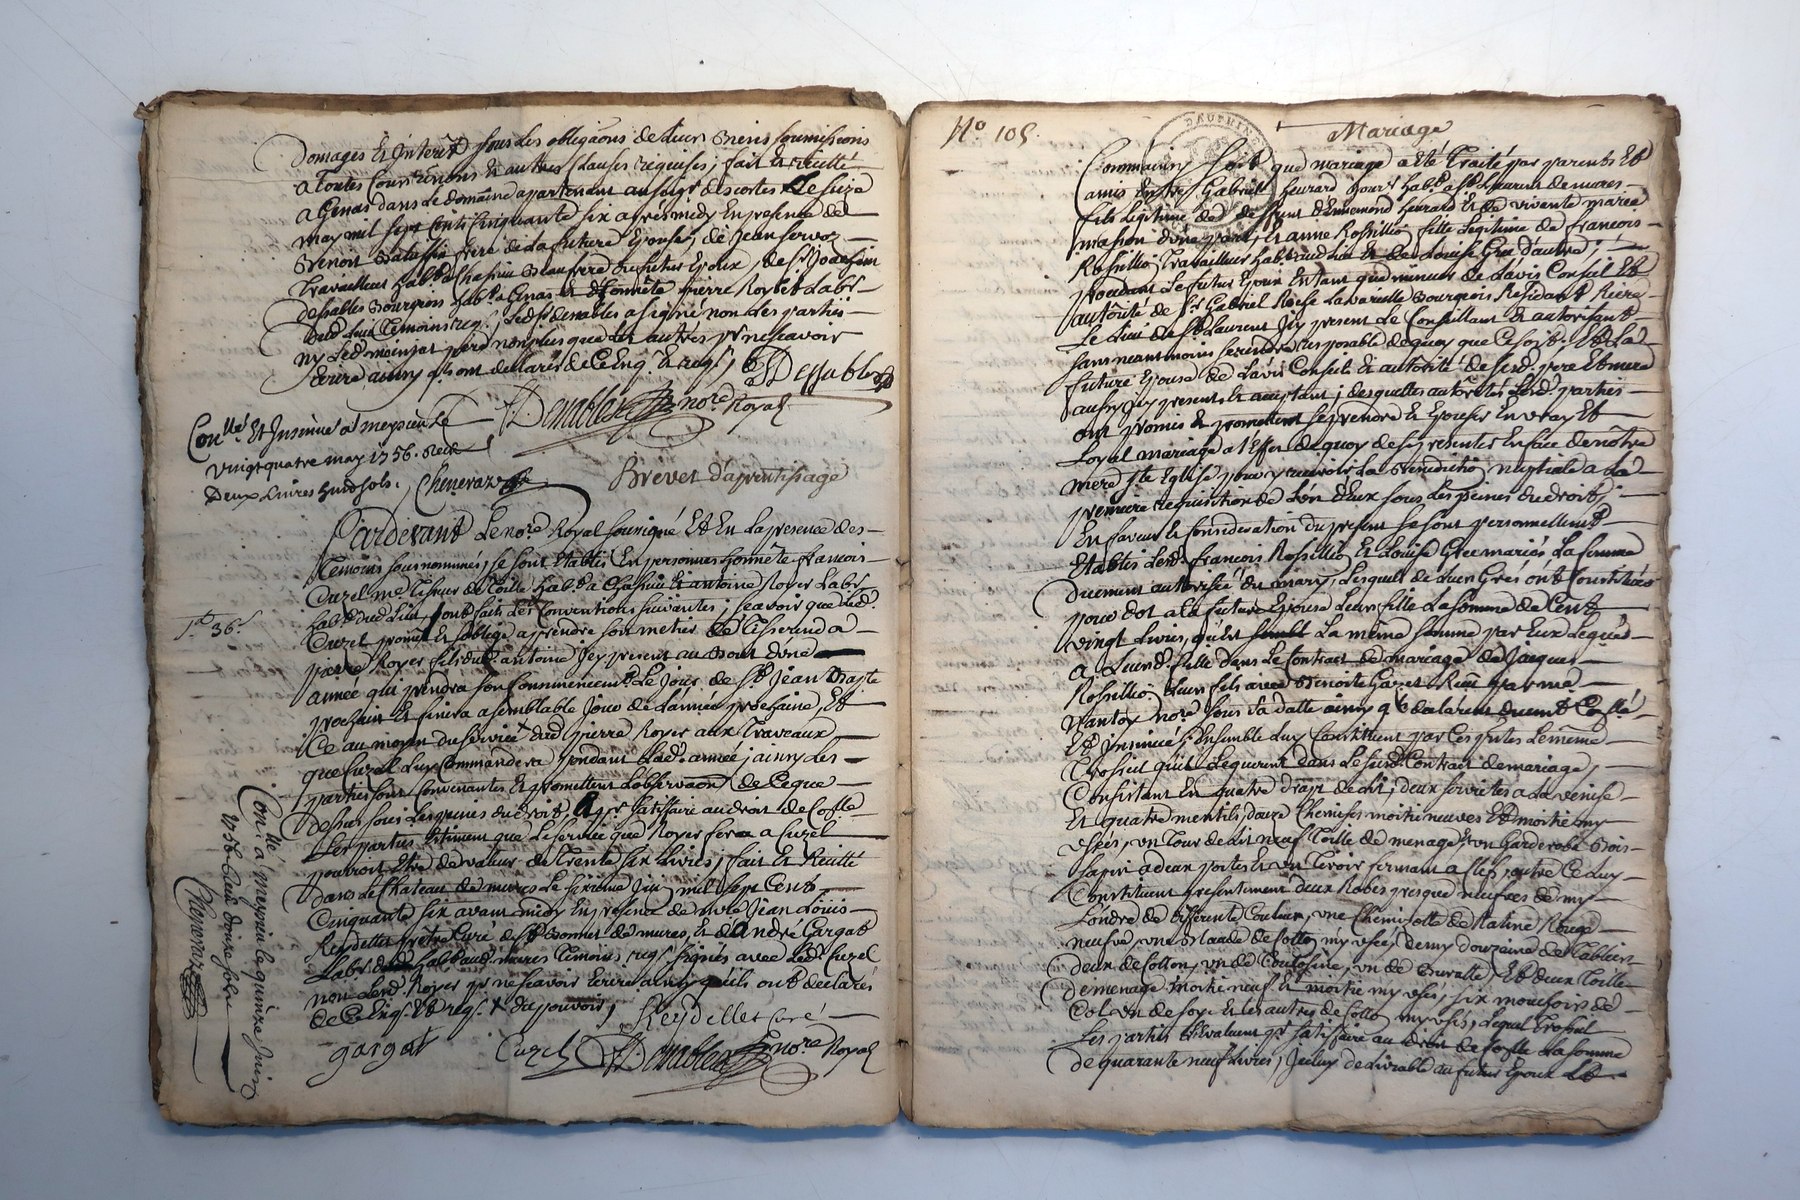 Domages Et Interêt sous les obligaōns de leurs Biens soumissions
a toutes Cours Et autres Clauses requises, fait Et recitté
a Genas dans le domaine apartenant au seigr descortes Le seize
may mil sept Cents Cinquante six après midy En presence de
Benoit frere de la future Epouse, de Jean servoz
travailleur habt a Chassieu Beaufrere du futur Epoux, de sr Joachim
dessables Bourgeois habt a Genas Et d'honnête pierre Robet Labr
dud lieu Temoins req. Led sr dessables a signé non les parties
ny Led non plus que les autres pr ne sçavoir
Ecrire ainsy q. ont declarés de Ce Enq. Et req.
Dessables
nore Royal
Conllé Et Insinué a meyzieu Le
vingt quatre may 1756. Reçu
Deux Livres huit sols. Cheneraz
Brevet d'aprentissage
Pardevant Le nore Royal sousigné Et En La presence des
Temoins sousnommés, se sont Etablis En personnes honnête francois
Cuzel me Tisseur de Toille habt a Chassieu Et antoine Royer Labr
habt dud Lieu, Lesquels ont faits Les Conventions suivantes, sçavoir que Led.
1t 36s
Cuzel promet Et s'oblige aprendre son métier de Tisserand a
pierre Royer fils dud. antoine Jcy present au Bout d'une
année qui prendra son Commencemt Le Jour de st Jean Bapte
prochain Et finira a semblable Jour de L'année prochaine, Et
Ce au moyen du service dud pierre Royer aux Travaux
que Cuzel Luy Commandera pendant Lad. année, ainsy Les
parties sont Convenantes Et promettent L'observaōn de Ce que
dessus sous Les peines du droit, Et pr satisfaire au droit de Conlle
Les parties Estiment que Le service que Royer fera a Cuzel
pourroit Etre de valeur de Trente six Livres, fait Et Recitté
dans Le Chateau de mures Le sixieme Juin mil sept Cents
Cinquante six avant midy En presence de mre Jean Louis
Reydellet prêtre Curé de st Bonnet de mures, Et d'andré Gargat
Labr habt aud. mures Temoins req. signés avec Led. Cuzel
non Led. Royer pr ne sçavoir Ecrire ainsy qu'ils ont declarés
de Ce Enq. Et req.
Reydellet Curé
gargat Cuzel nore Royal
Conllé a meyzieu le quinze Juin
1756. Reçu douze sols
Cheneraz
No. 105.
DAUPHIN
Mariage
Comm'ainsy soit que mariage a été Traité par parents Et
amis Entre Gabriel heurard habt a st Laurent de mures
fils Legitime de deffunt Ennemond heurard Et de vivante marie
masson d'une part, Et anne Rossillio fille Legitime de francois
Rossillio Travailleur habt aud lieu Et de Louise Grée d'autre,
procedant Le futur Epoux En tant que mineur de L'avis Conseil Et
autorité de sr Gabriel Roche Lavarelle Bourgeois Residant Riere
Le Lieu de st Laurent Jcy present Le Conseillant Et autorisant
sans neantmoins se rendre responsable de quoy que Ce soit. Et La
future Epouse de L'avis Conseil Et autorité de sesd. pere Et mere
aussy Jcy presents Et acceptant, desquelles autorités Lesd. parties
ont promis Et promettent se prendre Et Epouser En vray Et
Loyal mariage a L'effet de quoy de se presenter En face de nôtre
mere ste Eglise pour y recevoir La Benediction nuptiale a La
premiere requisition de L'un d'Eux sous Les peines du droit,
En faveur Et Consideration du present se sont personnellemt
Etablis Lesd. francois Rossillio Et Louise Grée mariés La femme
duement autorisée du mary, Lesquels de Leur Gré ont Constitués
pour dot a La future Epouse Leur fille La somme de Cent
vingt Livres, qu'est La même somme par Eux Leguée
a Leurd. fille dans Le Contract de mariage de Jacques
Rossillio Leur fils avec Benoite Gazet Reçu par me
nore sous sa datte ainsy q. declarent duemt Conllé
Et Insinué, Ensemble Luy Constituent par Ces pntes Le même
Trossel qu'ils Leguerent dans Le susd. Contract de mariage,
Consistant En quatre draps de Lit, deux serviettes a La venise
Et quatre mentils, douze Chemises moitié neuves Et moitié my
usées, un Tour de Lit neuf Toille de menage, un Garderobe Bois
sapin a deux portes Et un Tiroir fermant a Clef, outre Ce Luy
Constituent presentement deux Robes presque neufves de my
Londre de differente Couleur, une Chemisolle de Ratine Rouge
neufve, une de Cotton my usée, demy douzaine de Tabliers
deux de Cotton, un de Toutosine, un de Et deux Toille
de menage moitié neuf Et moitié my usés, six mouchoirs de
Col un de soye Et Les autres de Cotton my usés, Lequel Trossel
Les parties Evaluent pr satisfaire au droit de Conlle La somme
de quarante neuf Livres, Jceluy delivrable au futur Epoux Le